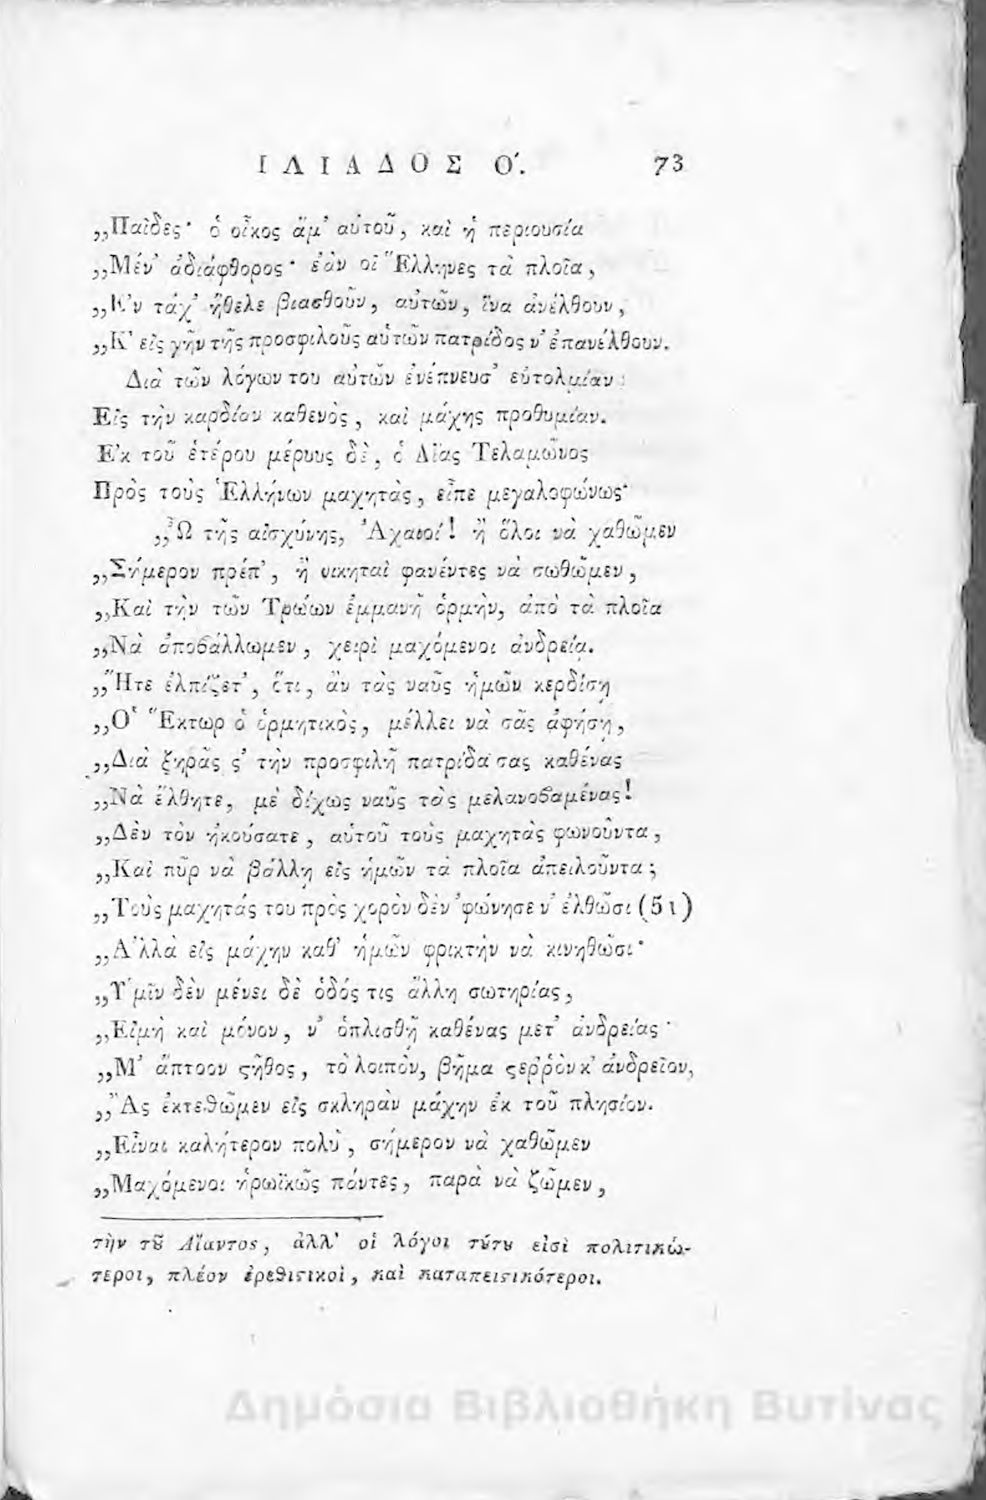 ΙΛΙΑΔΟΣ Ο΄. 73
„Παῖδες· ὁ οἶκος ἅμ' αὐτοῦ, καὶ ἡ περιουσία
„Μέν' ἀδιάφθορος· ἐὰν οἱ Ἕλληνες τὰ πλοῖα,
„Κ'ν τάχ' ἤθελε βιασθοῦν, αὐτῶν, ἵνα ἀνέλθουν,
„Κ' εἰς γῆν τῆς προσφιλοῦς αὑτῶν πατρίδος ν' ἐπανέλθουν.
Διὰ τῶν λόγων του αὐτῶν ἐνέπνευσ' εὐτολμίαν
Εἰς τὴν καρδίαν καθενὸς, καὶ μάχης προθυμίαν.
Ἐκ τοῦ ἑτέρου μέρους δὲ, ὁ Αἴας Τελαμῶνος
Πρὸς τοὺς Ἑλλήνων μαχητὰς, εἶπε μεγαλοφώνως·
„Ὦ τῆς αἰσχύνης, Ἀχαιοί! ἢ ὅλοι νὰ χαθῶμεν
„Σήμερον πρέπ', ἢ νικηταὶ φανέντες νὰ σωθῶμεν,
„Καὶ τὴν τῶν Τρώων ἐμμανῆ ὁρμὴν, ἀπὸ τὰ πλοῖα
„Νὰ ἀποϐάλλωμεν, χειρὶ μαχόμενοι ἀνδρεία.
„Ἤτε ἐλπίζετ', ὅτι, ἂν τὰς ναῦς ἡμῶν κερδίσῃ
„Ὁ Ἕκτωρ ὁ ὁρμητικὸς, μέλλει νὰ σᾶς ἀφήσῃ,
„Διὰ ξηρᾶς ς' τὴν προσφιλῆ πατρίδα σας καθένας
„Νὰ ἔλθητε, μὲ δίχως ναῦς τὰς μελανοϐαμένας!
„Δὲν τὸν ἠκούσατε, αὑτοῦ τοὺς μαχητὰς φωνοῦντα,
„Καὶ πῦρ νὰ βάλλῃ εἰς ἡμῶν τὰ πλοῖα ἀπειλοῦντα;
„Τοὺς μαχητάς του πρὸς χορὸν δὲν 'φώνησε ν' ἐλθῶσι (51)
„Ἀλλὰ εἰς μάχην καθ' ἡμῶν φρικτὴν νὰ κινηθῶσι·
„Ὑμῖν δὲν μένει δὲ ὁδός τις ἄλλη σωτηρίας,
„Εἰμὴ καὶ μόνον, ν' ὁπλισθῇ καθένας μετ' ἀνδρείας·
„Μ' ἄπτοον ςῆθος, τὸ λοιπὸν, βῆμα ςερῥὸν κ' ἀνδρεῖον,
„Ἂς ἐκτεθῶμεν εἰς σκληρὰν μάχην ἐκ τοῦ πλησίον.
„Εἶναι καλήτερον πολὺ, σήμερον νὰ χαθῶμεν
„Μαχόμενοι ἡρωϊκῶς πάντες, παρὰ νὰ ζῶμεν,
τὴν τȣ͂ Αἴαντος, ἀλλ' οἱ λόγοι τȣ́τȣ εἰσὶ πολιτικώ-
τεροι, πλέον ἐρεθιςικοὶ, καὶ καταπειςικότεροι.
Δημόσια Βιβλιοθήκη Βυτίνας